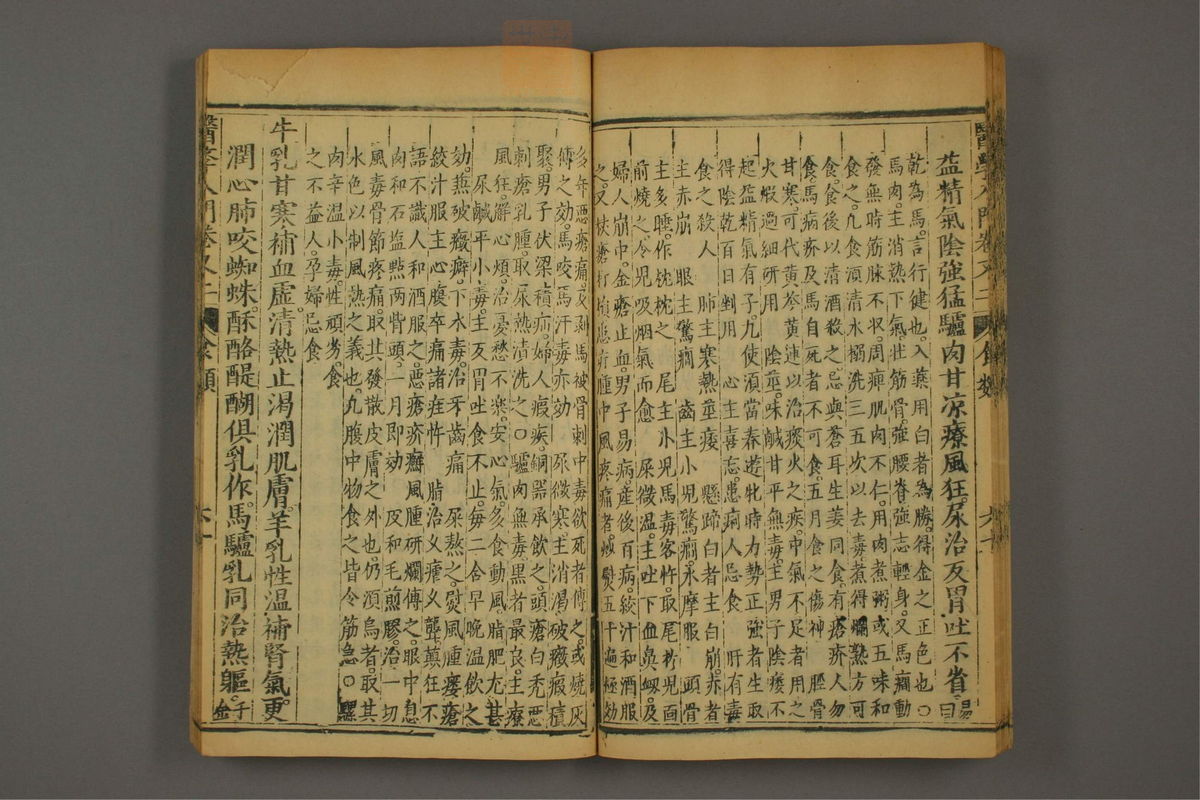 醫學入門卷又二 食類 六十
益精氣陰強猛驢肉甘凉療風狂尿治反胃吐不省 易曰
乾為馬。言行健也。入藥用白者為勝。得金之正色也。○
馬肉。主消熱下氣。壯筋骨。強腰脊。強志輕身。又馬癎動
發無時。筋脉不收。周痺肌肉不仁。用肉煮粥。或五味和
食之。凡食湏清水搦洗三五次。以去毒。煮得爛熟。方可
食。食後以清酒殺之。忌與蒼耳生姜同食。有瘡疥人勿
食。馬病疥及馬自死者不可食。五月食之傷神 脛骨
甘寒。可代黄芩黄連。以治痰火之疾。中氣不足者用之
火煆過細研用 陰莖。味鹹甘平。無毒。主男子陰痿不
起。益精氣有子。凡使湏當春遊牝時。力勢正強者。生取
得陰乾百日。剉用 心主喜忘。患痢人忌食 肝有毒
食之殺人 肺主寒熱莖痿 懸蹄白者。主白崩。赤者
主赤崩 眼主驚癎 齒主小兒驚癎。水摩服 頭骨
主多睡。作枕枕之 尾主小兒馬毒客忤。取尾於兒面
前燒之。令兒吸烟氣而愈 屎微温。主吐下血。鼻衂。及
婦人崩中。金瘡止血。男子易病。産後百病。絞汁和酒服
之。又杖瘡打損患疔腫中風疼痛者。炒熨五十遍極効
多年惡瘡痛。及剥馬被骨刺中毒欲死者。傅之。或燒灰
傅之効。馬咬。馬汗毒亦効 尿微寒。主消渴。破癥瘕積
聚。男子伏梁積疝。婦人瘕疾。銅器承飲之。頭瘡白禿。惡
刺瘡。乳腫。取尿熱漬洗之○驢肉無毒。黒者最良。主療
風狂。解心煩。治憂愁不樂。安心氣。多食動風。脂肥尤甚
尿鹹平。小毒。主反胃吐食不止。毎二合。早晚温飲之
効。兼破癥癖。下水毒。治牙齒痛 屎熬之。熨風腫瘻瘡
絞汁服。主心腹卒痛諸疰忤 脂治久瘧久聾。顛狂不
語。不識人。和酒服之。惡瘡疥癬風腫。研爛傅之。眼中息
肉。和石鹽點兩眥頭。一月即効 皮和毛煎膠。治一切
風毒骨節疼痛。取其發散皮膚之外也。仍湏烏者。取其
水色以制風熱之義也。凡腹中物。食之皆令筋急○騾
肉。辛温小毒。性頑劣。食
之不益人。孕婦忌食
牛乳甘寒補血虛。清熱止渴潤肌膚。羊乳性温補腎氣。更
潤心肺咬蜘蛛。酥酪醍醐俱乳作。馬驢乳同治熱軀。 千金
醫學入門卷又二 食類 六十一